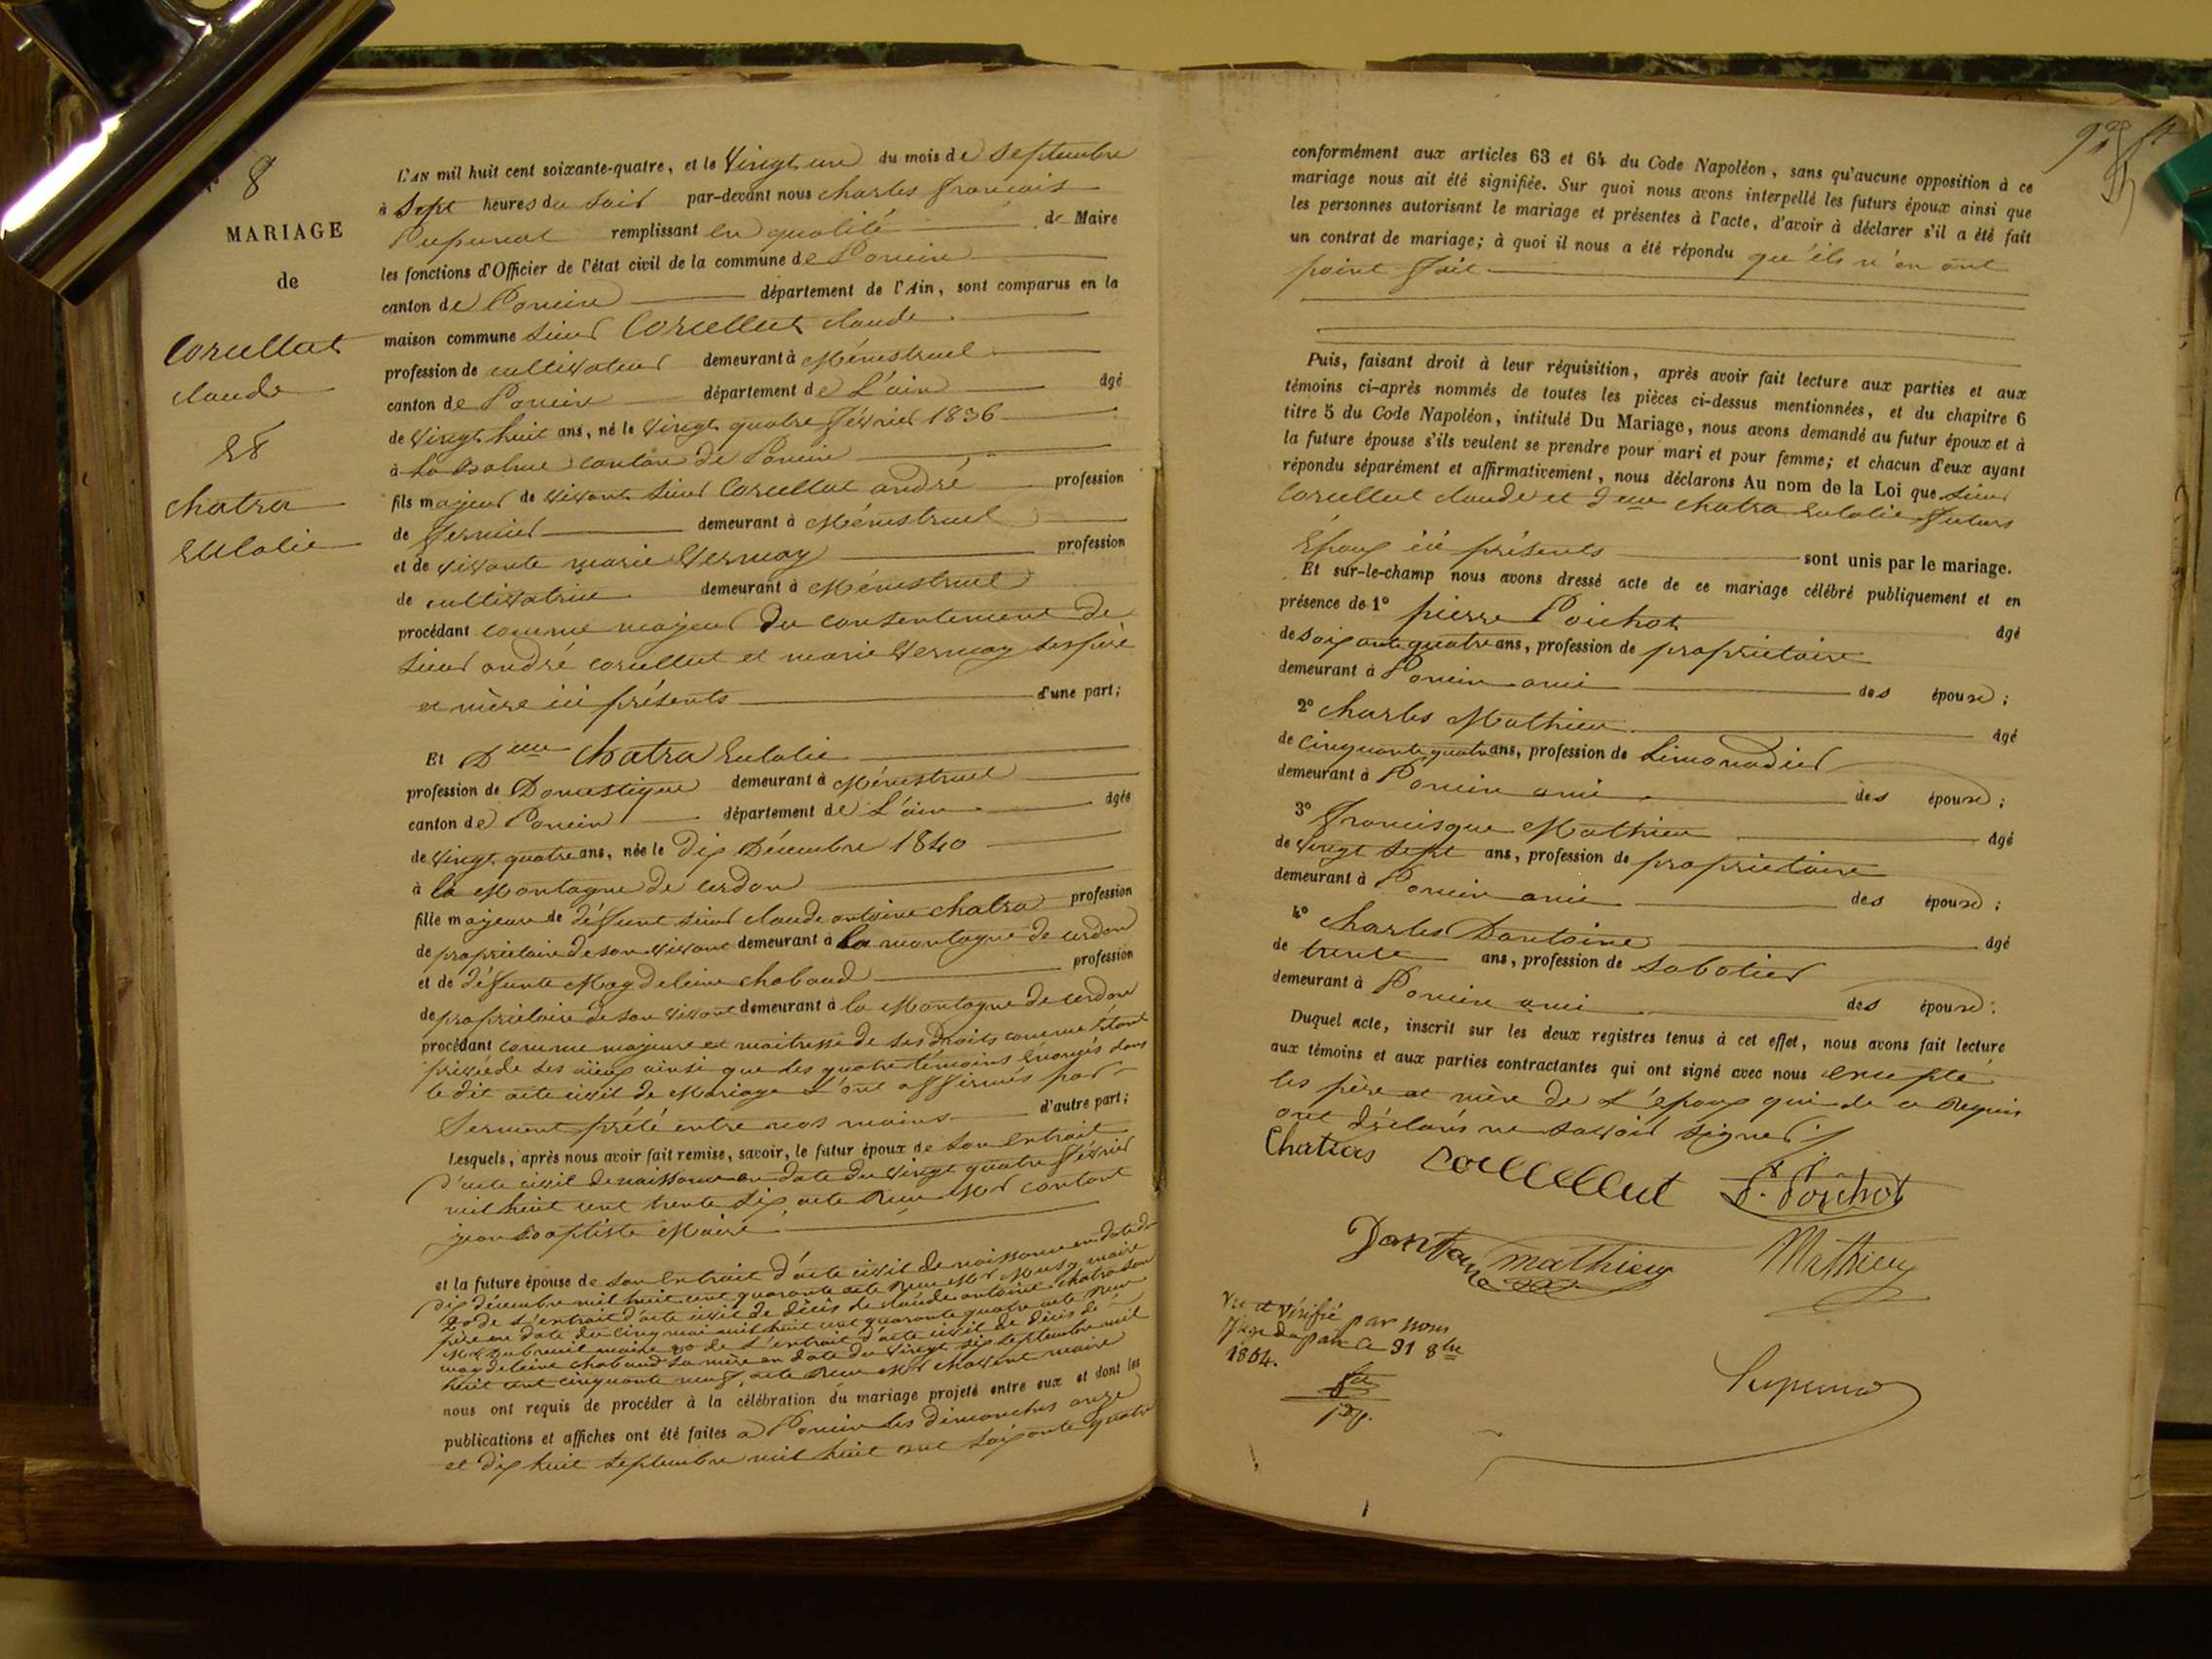 N° 8
MARIAGE
de
Corcellut
claude
Et
Chatra
Eulalie
L'AN mil huit cent soixante-quatre, et le Vingt un du mois de Septembre
à Sept heures du Soir par-devant nous Charles François
remplissant en qualité de Maire
les fonctions d'Officier de l'état civil de la commune de Poncin
canton de Poncin département de l'Ain, sont comparus en la
maison commune Sieur Corcellut claude
profession de cultivateur demeurant à Ménestruel
canton de Poncin département de L'ain âgé
de Vingt huit ans, né le Vingt quatre Février 1836
à La Balme canton de Poncin
fils majeur de vivant Sieur Corcellut andré profession
de Fermier demeurant à Ménestruel
et de vivante marie Vernay profession
de cultivatrice demeurant à Ménestruel
procédant comme majeur du consentement de
Sieur andré corcellut et marie Vernay ses père
et mère ici présents d'une part;
Et Delle Chatra Eulalie
profession de Domestique demeurant à Ménestruel
canton de Poncin département de L'ain âgée
de Vingt quatre ans, née le dix Décembre 1840
à la Montagne de cerdon
fille majeure de défunt sieur claude antoine chatra profession
de propriétaire de son vivant demeurant à la montagne de cerdon
et de défunte Magdeleine chabaud profession
de propriétaire de son vivant demeurant à la Montagne de cerdon
procédant comme majeure et maitresse de ses droits comme étant
privée de ses aieux ainsi que les quatre témoins énoncés dans
le dit acte civil de Mariage l'ont affirmés par
Serment prété entre nos mains d'autre part;
Lesquels, après nous avoir fait remise, savoir, le futur époux de son Extrait
d'acte civil de naissance en date du Vingt quatre Février
mil huit cent trente six acte Reçu Mr contant
jean Baptiste Maire
et la future épouse de son Extrait d'acte civil de naissance en date du
dix décembre mil huit cent quarante acte Reçu Mr Musy maire
2o de L'extrait d'acte civil de décès de claude antoine chatra son
père en date du cinq mai mil huit cent quarante quatre acte Reçu
Mr Dubreuil maire 3o de L'extrait d'acte civil de décès de
magdeleine chabaud sa mère en date du Vingt six septembre mil
huit cent cinquante neuf, acte Reçu Mr maire
nous ont requis de procéder à la célébration du mariage projeté entre eux et dont les
publications et affiches ont été faites à Poncin les dimanches onze
et dix huit septembre mil huit cent soixante quatre
conformément aux articles 63 et 64 du Code Napoléon, sans qu'aucune opposition à ce
mariage nous ait été signifiée. Sur quoi nous avons interpellé les futurs époux ainsi que
les personnes autorisant le mariage et présentes à l'acte, d'avoir à déclarer s'il a été fait
un contrat de mariage; à quoi il nous a été répondu qu'ils n'en ont
point fait
Puis, faisant droit à leur réquisition, après avoir fait lecture aux parties et aux
témoins ci-après nommés de toutes les pièces ci-dessus mentionnées, et du chapitre 6
titre 5 du Code Napoléon, intitulé Du Mariage, nous avons demandé au futur époux et à
la future épouse s'ils veulent se prendre pour mari et pour femme; et chacun d'eux ayant
répondu séparément et affirmativement, nous déclarons Au nom de la Loi que Sieur
Corcellut claude et Delle chatra Eulalie futurs
Epoux ici présents sont unis par le mariage.
Et sur-le-champ nous avons dressé acte de ce mariage célébré publiquement et en
présence de 1° pierre Poichot âgé
de soixante quatre ans, profession de propriétaire
demeurant à Poncin ami des époux;
2° Charles Mathieu âgé
de Cinquante quatre ans, profession de Limonadier
demeurant à Poncin ami des époux;
3° Francisque Mathieu âgé
de Vingt Sept ans, profession de propriétaire
demeurant à Poncin ami des époux;
4° Charles Dantoine âgé
de trente ans, profession de Sabotier
demeurant à Poncin ami des époux:
Duquel acte, inscrit sur les deux registres tenus à cet effet, nous avons fait lecture
aux témoins et aux parties contractantes qui ont signé avec nous excepté
les père et mère de L'époux qui de ce Requis
ont déclarés ne savoir signer
corcellut P. Poichot
Dantoine mathieu Mathieu
Vu et vérifié par nous
Juge de paix Ce 31 8bre
1864.